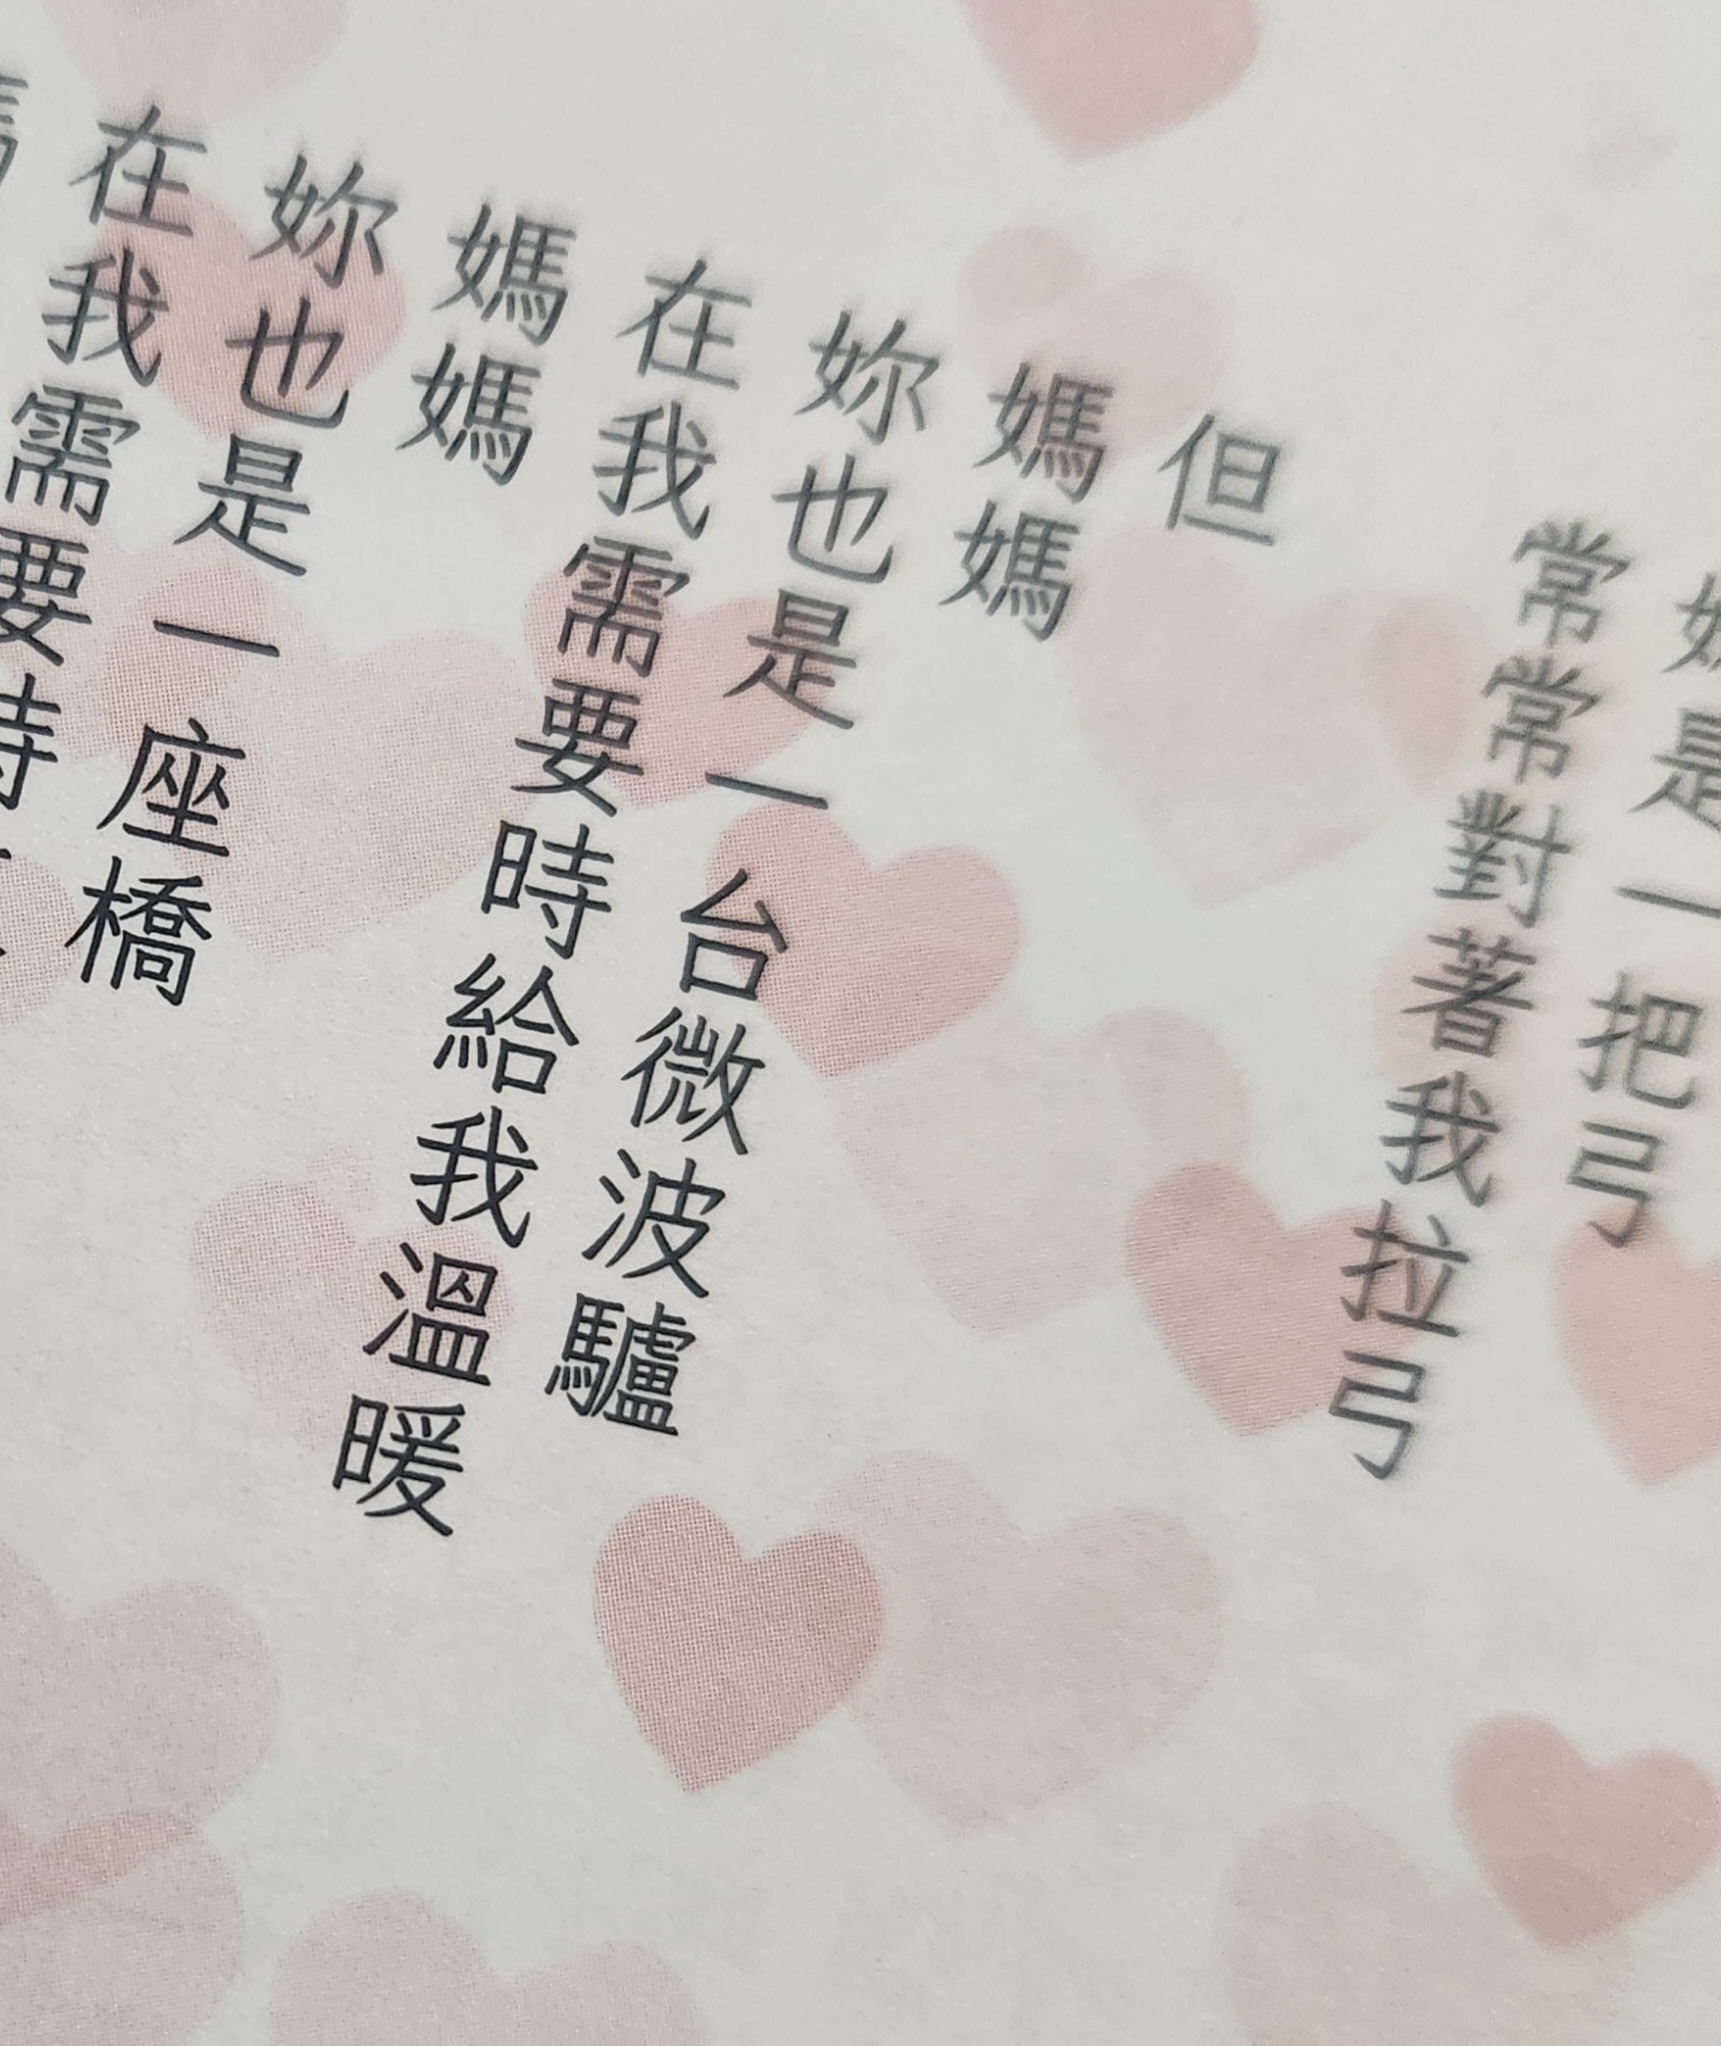 妳是一把弓
常常對著我拉弓
但
媽媽
妳也是一台微波驢
在我需要時給我溫暖
媽媽
妳也是一座橋
在我需要時